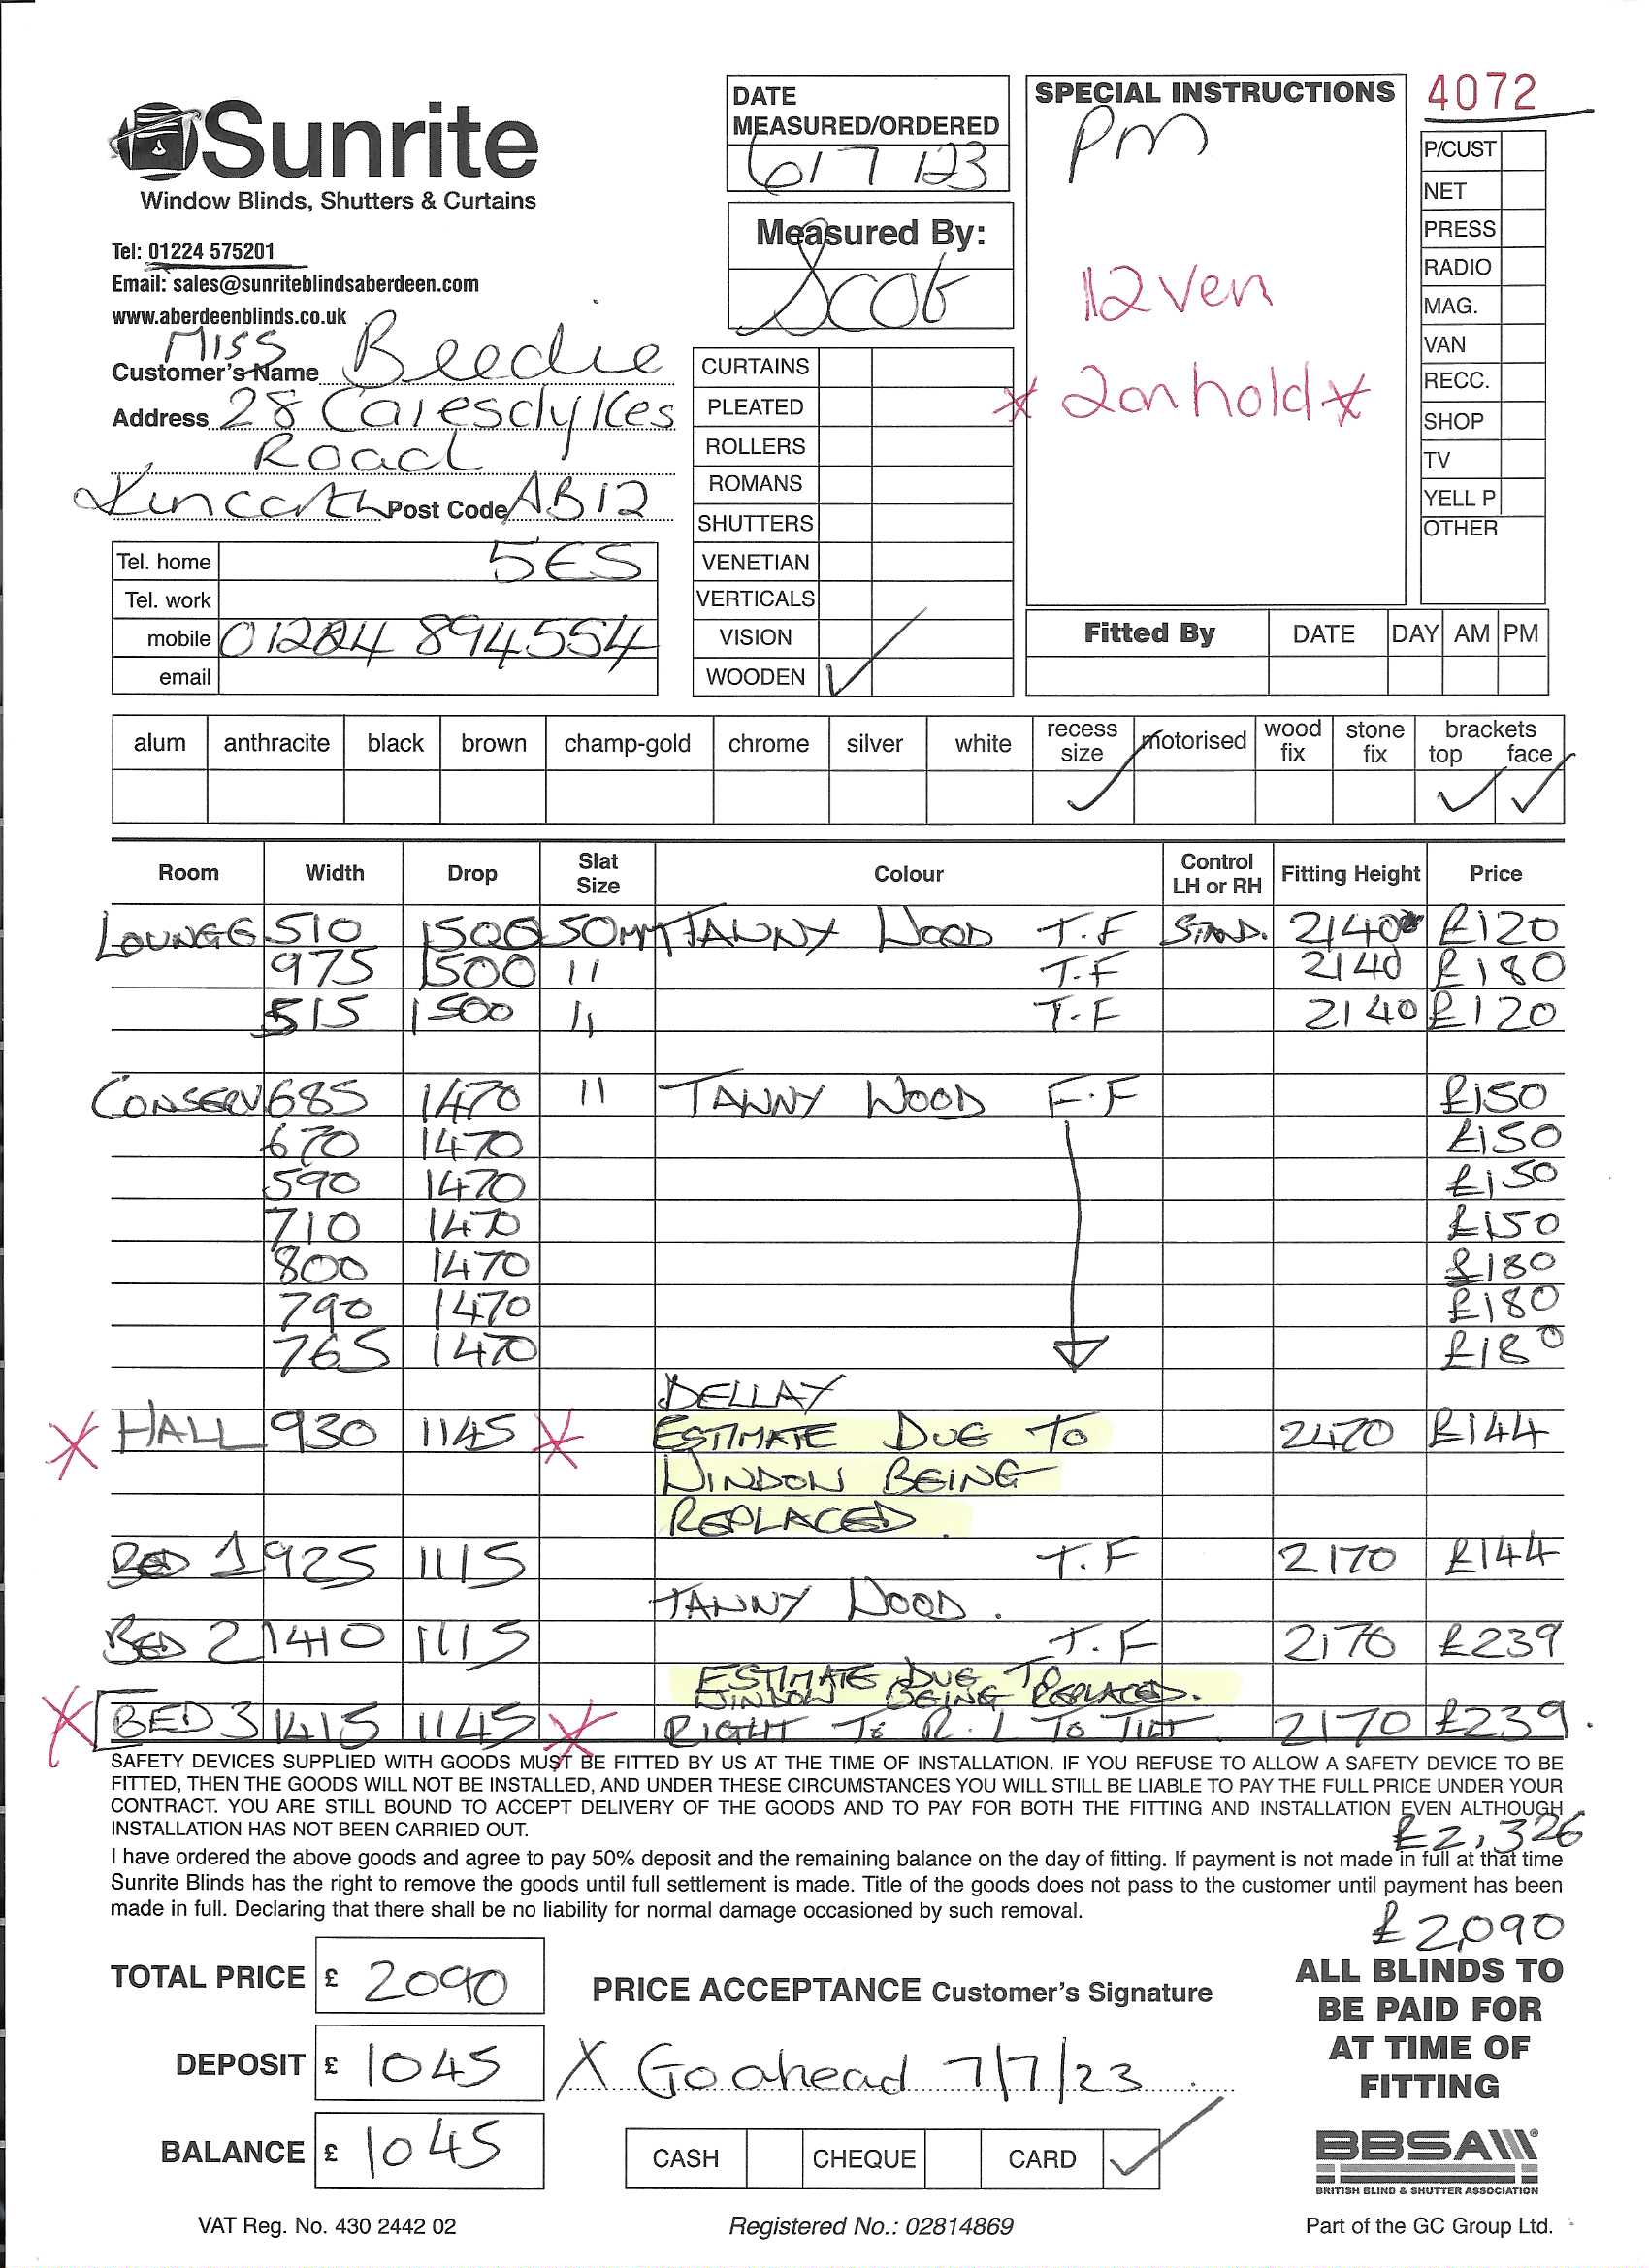 Sunrite
Window Blinds, Shutters & Curtains
Tel: 01224 575201
Email: sales@sunriteblindsaberdeen.com
www.aberdeenblinds.co.uk
Customer's Name Miss Beedie
Address 28 Cairesdykes
Road
Post Code AB12
Tel. home 5ES
Tel. work
mobile 01224 894554
email
DATE
MEASURED/ORDERED
6/7/23
Measured By:
Scot
CURTAINS
PLEATED
ROLLERS
ROMANS
SHUTTERS
VENETIAN
VERTICALS
VISION
WOODEN ✓
SPECIAL INSTRUCTIONS
Pm
12 Ven
* 2 on hold *
4072
P/CUST
NET
PRESS
RADIO
MAG.
VAN
RECC.
SHOP
TV
YELL P
OTHER
Fitted By DATE DAY AM PM
alum anthracite black brown champ-gold chrome silver white recess size motorised wood fix stone fix brackets top face
✓ ✓ ✓
Room Width Drop Slat Size Colour Control LH or RH Fitting Height Price
LOUNGE 510 1500 50MM TAWNY WOOD T.F STAND. 2140 £120
975 1500 11 T.F 2140 £180
515 1500 11 T.F 2140 £120
CONSERV 685 1470 11 TAWNY WOOD F.F £150
670 1470 £150
590 1470 £150
710 1470 £150
800 1470 £180
790 1470 £180
765 1470 £180
DELLAY
* HALL 930 1145 * ESTIMATE DUE TO 2470 £144
WINDOW BEING
REPLACED.
BED 1 925 1115 T.F 2170 £144
TAWNY WOOD.
BED 2 1410 1115 T.F 2170 £239
ESTIMATE DUE TO
WINDOW BEING REPLACED.
* BED 3 1415 1145 * RIGHT TO R. L TO TILT 2170 £239.
SAFETY DEVICES SUPPLIED WITH GOODS MUST BE FITTED BY US AT THE TIME OF INSTALLATION. IF YOU REFUSE TO ALLOW A SAFETY DEVICE TO BE
FITTED, THEN THE GOODS WILL NOT BE INSTALLED, AND UNDER THESE CIRCUMSTANCES YOU WILL STILL BE LIABLE TO PAY THE FULL PRICE UNDER YOUR
CONTRACT. YOU ARE STILL BOUND TO ACCEPT DELIVERY OF THE GOODS AND TO PAY FOR BOTH THE FITTING AND INSTALLATION EVEN ALTHOUGH
INSTALLATION HAS NOT BEEN CARRIED OUT.
£2,326
I have ordered the above goods and agree to pay 50% deposit and the remaining balance on the day of fitting. If payment is not made in full at that time
Sunrite Blinds has the right to remove the goods until full settlement is made. Title of the goods does not pass to the customer until payment has been
made in full. Declaring that there shall be no liability for normal damage occasioned by such removal.
£2,090
TOTAL PRICE £ 2090
DEPOSIT £ 1045
BALANCE £ 1045
PRICE ACCEPTANCE Customer's Signature
X Go ahead 7/7/23
CASH CHEQUE CARD ✓
ALL BLINDS TO
BE PAID FOR
AT TIME OF
FITTING
BBSA
BRITISH BLIND & SHUTTER ASSOCIATION
VAT Reg. No. 430 2442 02
Registered No.: 02814869
Part of the GC Group Ltd.